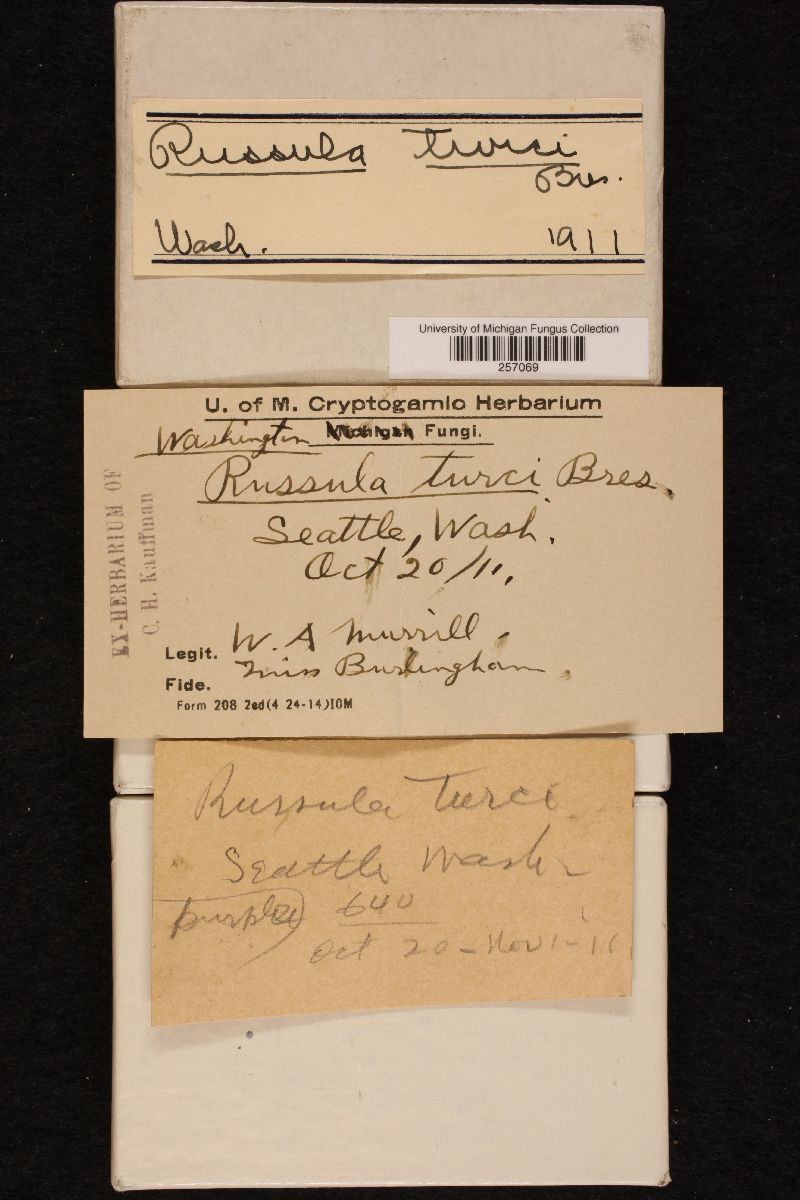 Russula turci
Bres.
Wash. 1911
University of Michigan Fungus Collection
257069
U. of M. Cryptogamic Herbarium
Washington Michigan Fungi.
Russula turci Bres.
Seattle, Wash.
Oct 20/11.
EX-HERBARIUM OF
C. H. Kauffman
Legit. W. A Murrill.
Fide. Miss Burlingham.
Form 208 2ed(4 24-14)10M
Russula Turci
Seattle Wash
purple 640
Oct 20-Nov 1-11